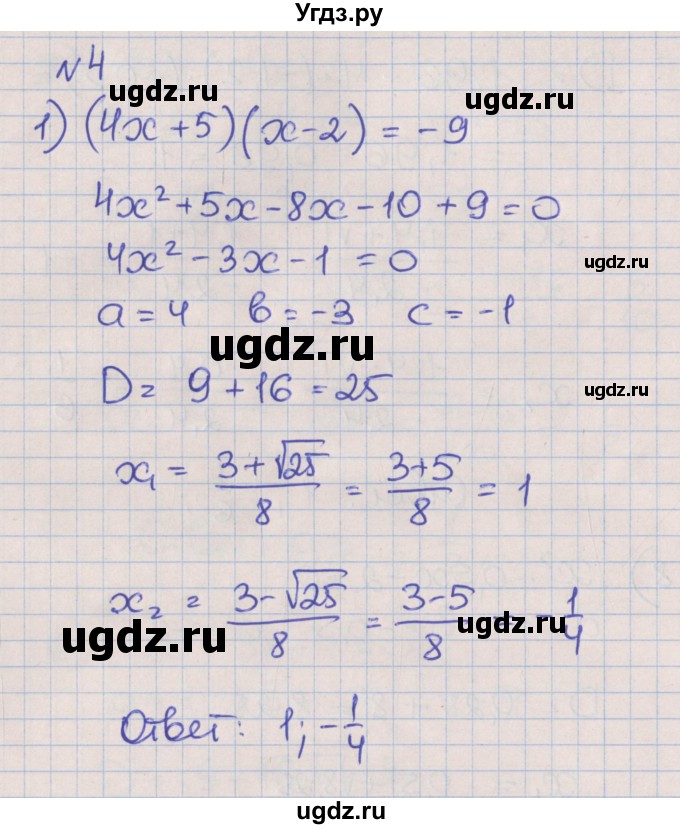 Угдз.ру
№4
ugdz.ru ugdz.ru
1) (4x+5)(x-2) = -9
4x² + 5x - 8x - 10 + 9 = 0
4x² - 3x - 1 = 0 ugdz.ru
a = 4 в = -3 c = -1
ugdz.ru
D = 9 + 16 = 25 ugdz.ru
x₁ = (3+√25)/8 = (3+5)/8 = 1
x₂ = (3-√25)/8 = (3-5)/8 = -1/4
ugdz.ru ugdz.ru
Ответ: 1; -1/4
ugdz.ru